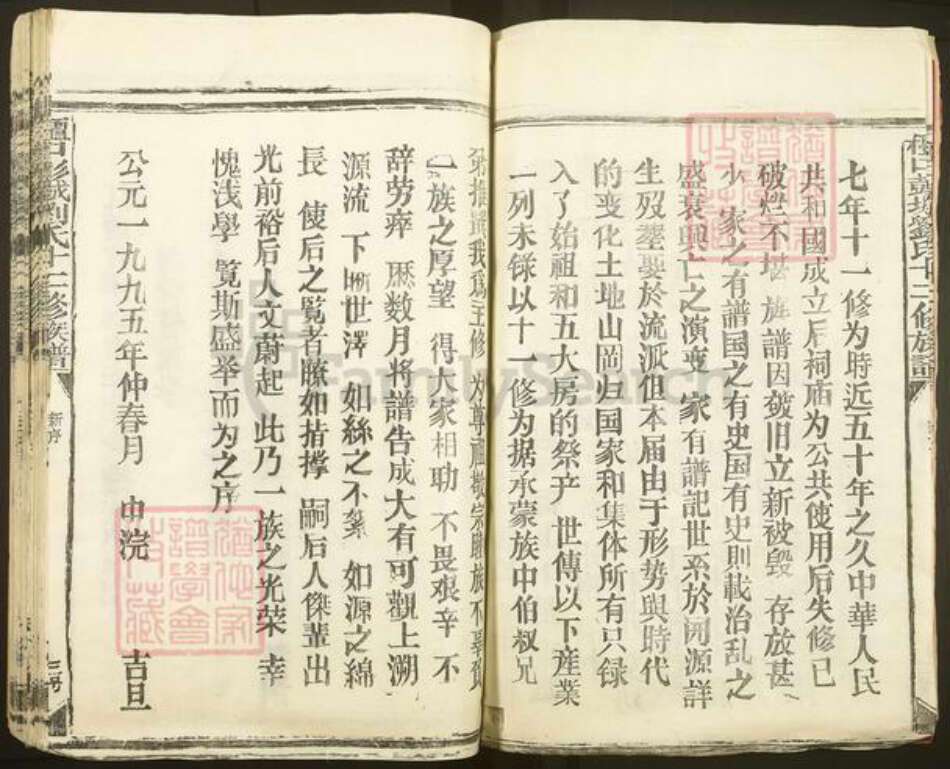 七年十一修为時近五十年之久中華人民
共和國成立后祠庙为公共使用后失修已
破烂不堪 族譜因破旧立新被毁 存放甚
少 家之有譜国之有史国有史則載治乱之
盛衰興亡之演变 家有譜記世系於開源詳
生殁塟娶於流派但本届由于形势與時代
的变化土地山岡归国家和集体所有只録
入了始祖和五大房的祭产 世傳以下産業
一列未録以十一修为据承蒙族中伯叔兄
弟推選我爲主修 为尊祖敬宗睦族不辜負
族之厚望 得大家相助 不畏艰辛 不
辞劳瘁 歷数月将譜告成大有可觀上溯
源流 下晰世澤 如絲之不紊 如源之綿
長 使后之覧者瞭如指撑 嗣后人傑輩出
光前裕后人文蔚起 此乃一族之光荣 幸
愧浅学 覧斯盛举而为之序
公元一九九五年仲春月 中浣 吉旦
彭城劉氏十二修族譜
彭城刘氏十二修族譜
新序
猶他家
譜學會
收藏
FamilySearch